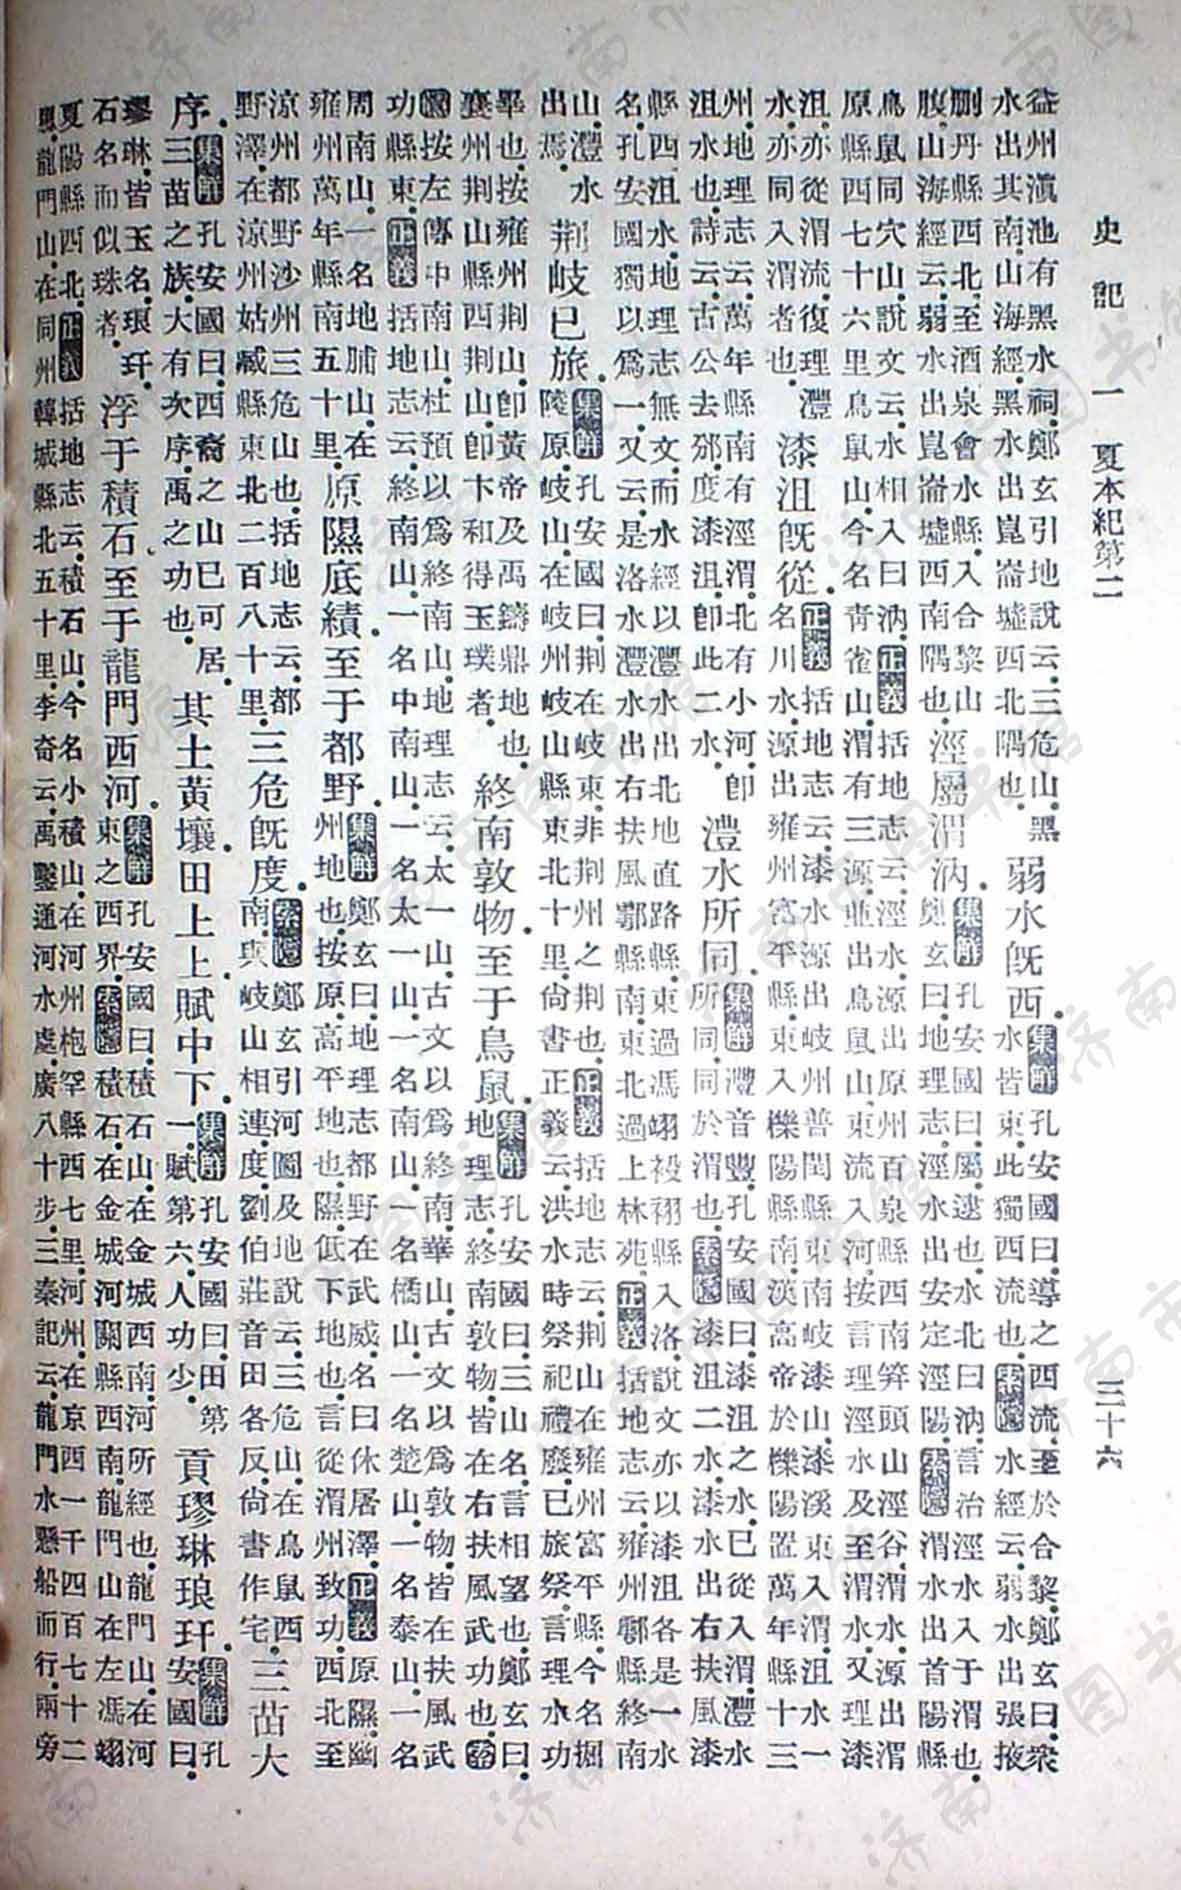 史記 一 夏本紀第二 三十六
益州滇池有黑水祠.鄭玄引地說云.三危山.黑
水出其南.山海經.黑水出崑崙墟西北隅也.
弱水既西.
集解孔安國曰.導之西流.至於合黎.鄭玄曰.衆
水皆東.此獨西流也.索隱水經云.弱水出張掖
刪丹縣西北.至酒泉會水縣.入合黎山
腹.山海經云.弱水出崑崙墟西南隅也.
涇屬渭汭.
集解孔安國曰.屬.逮也.水北曰汭.言治涇水入于渭也.
鄭玄曰.地理志.涇水出安定涇陽.索隱渭水出首陽縣
鳥鼠同穴山.說文云.水相入曰汭.正義括地志云.涇水源出原州百泉縣西南笄頭山涇谷.渭水源出渭
原縣西七十六里鳥鼠山.今名青雀山.渭有三源.並出鳥鼠山.東流入河.按言理涇水及至渭水.又理漆
沮.亦從渭流.復理灃
水.亦同入渭者也.
漆沮既從.
正義括地志云.漆水源出岐州普閏縣東南岐漆山漆溪.東入渭.沮水一
名川水.源出雍州富平縣.東入櫟陽縣南.漢高帝於櫟陽置萬年縣.十三
州地理志云.萬年縣南有涇渭.北有小河.即
沮水也.詩云.古公去邠.度漆沮.即此二水.
灃水所同.
集解灃音豐.孔安國曰.漆沮之水.已從入渭.灃水
所同.同於渭也.索隱漆沮二水.漆水出右扶風漆
縣西.沮水.地理志無文.而水經以灃水出北地直路縣.東過馮翊祋祤縣入洛.說文亦以漆沮各是一水
名.孔安國獨以爲一.又云是洛水.灃水出右扶風鄠縣南.東北過上林苑.正義括地志云.雍州鄠縣終南
山.灃水
出焉.
荊岐已旅.
集解孔安國曰.荊在岐東.非荊州之荊也.正義括地志云.荊山在雍州富平縣.今名掘
陵原.岐山在岐州岐山縣東北十里.尙書正義云.洪水時祭祀禮廢.已旅祭.言理水功
畢也.按雍州荊山.即黃帝及禹鑄鼎地也.
襄州荊山縣西荊山.即卞和得玉璞者.
終南敦物.至于鳥鼠.
集解孔安國曰.三山名.言相望也.鄭玄曰.
地理志.終南敦物.皆在右扶風武功也.索
隱按左傳中南山.杜預以爲終南山.地理志云.太一山.古文以爲終南.華山.古文以爲敦物.皆在扶風武
功縣東.正義括地志云.終南山.一名中南山.一名太一山.一名南山.一名橘山.一名楚山.一名泰山.一名
周南山.一名地脯山.在
雍州萬年縣南五十里.
原隰底績.至于都野.
集解鄭玄曰.地理志.都野在武威.名曰休屠澤.正義原隰.幽
州地也.按原.高平地也.隰.低下地也.言從渭州致功.西北至
涼州都野.沙州三危山也.括地志云.都
野澤.在涼州姑臧縣東北二百八十里.
三危既度.
索隱鄭玄引河圖及地說云.三危山.在鳥鼠西
南.與岐山相連.度.劉伯莊音田各反.尙書作宅.
三苗大
序.
集解孔安國曰.西裔之山.已可居.
三苗之族.大有次序.禹之功也.
其土黃壤.田上上.賦中下.
集解孔安國曰.田第
一.賦第六.人功少.
貢璆琳琅玕.
集解孔
安國曰.
璆琳.皆玉名.琅玕.
石名而似珠者.
浮于積石.至于龍門西河.
集解孔安國曰.積石山.在金城西南.河所經也.龍門山.在河
東之西界.索隱積石.在金城河關縣西南.龍門山.在左馮翊
夏陽縣西北.正義括地志云.積石山.今名小積山.在河州枹罕縣西七里.河州.在京西一千四百七十二
里.龍門山.在同州韓城縣北五十里.李奇云.禹鑿通河水處.廣八十步.三秦記云.龍門水懸船而行.兩旁
济南市图书馆